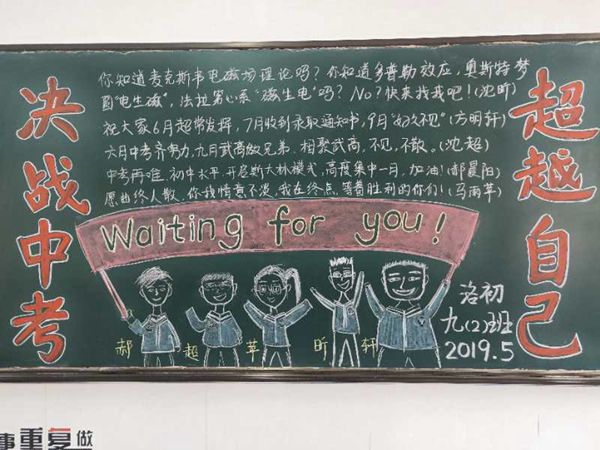 决战中考
你知道麦克斯韦电磁场理论吗？你知道多普勒效应，奥斯特梦
圆“电生磁”，法拉第心系“磁生电”吗？No？快来找我吧！(沈昕)
祝大家6月超常发挥，7月收到录取通知书，9月“好久不见”(方明轩)
六月中考齐努力，九月武高做兄弟，相聚武高，不见，不散。(沈超)
中考再难，初中水平，开启斯大林模式，高度集中一月，加油！(郝晨阳)
愿曲终人散，你我情意不淡，我在终点，等着胜利的你们！(马雨苹)
Waiting for you!
郝 超 苹 昕 轩
洛初
九(2)班
2019.5
超越自己
事重复做